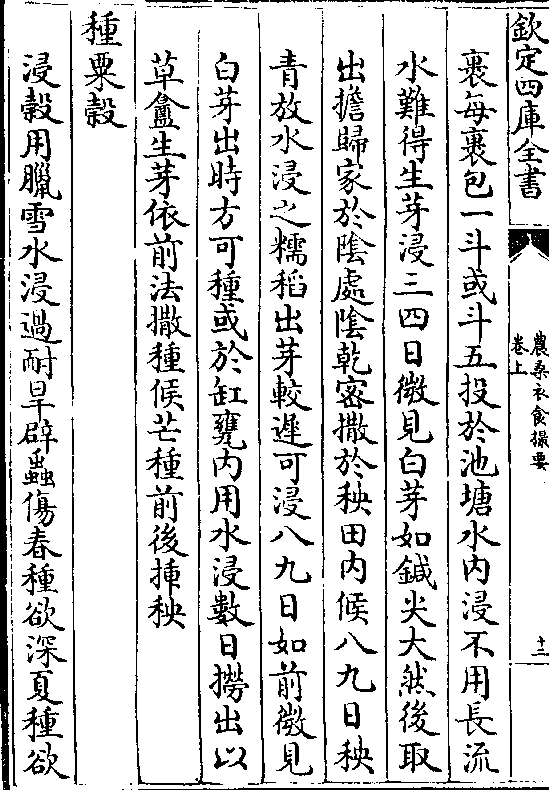 欽定四庫全書
農桑衣食撮要
卷上
十二
裹每裹包一斗或斗五投於池塘水内浸不用長流
水難得生芽浸三四日微見白芽如鍼尖大然後取
出擔歸家於陰處陰乾密撒於秧田内候八九日秧
青放水浸之糯稻出芽較遲可浸八九日如前微見
白芽出時方可種或於缸甕内用水浸數日撈出以
草盦生芽依前法撒種候芒種前後揷秧
種粟穀
浸穀用臘雪水浸過耐旱辟蟲傷春種欲深夏種欲